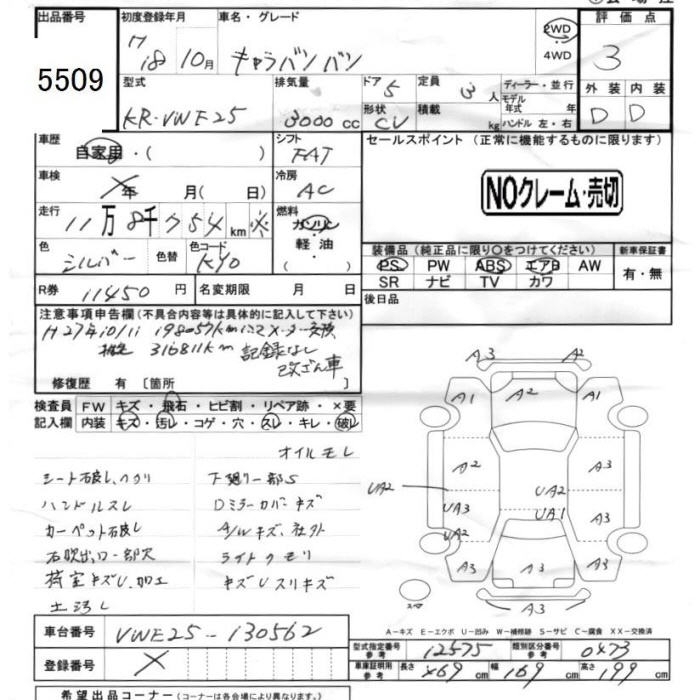 出品番号
5509
初度登録年月
H18 10月
車名・グレード
キャラバンバン
2WD
4WD
評価点
3
型式
KR-VWE25
排気量
3000 cc
ドア 5
形状 CV
定員 3人
積載 kg
ディーラー・並行
モデル年式 年
ハンドル 左・右
外装 内装
D D
車歴
自家用・( )
シフト
FAT
セールスポイント(正常に機能するものに限ります)
車検
年 月( 日)
冷房
AC
NOクレーム・売切
走行
11万8千754km ※
燃料
ガソリン
軽油・
( )
色
シルバー
色替
色コード
KY0
装備品(純正品に限り○をつけてください)
PS PW ABS エアB AW
SR ナビ TV カワ
新車保証書
有・無
R券 11450円
名変期限 月 日
後日品
注意事項申告欄(不具合内容等は具体的に記入して下さい)
H27年10/11 198057kmにてメーター交換
推定 316811km 記録なし
改ざん車
修復歴 有 〔箇所
検査員記入欄
FW キズ・飛石・ヒビ割・リペア跡・×要
内装 キズ・汚レ・コゲ・穴・スレ・キレ・破レ
オイルモレ
シート破レ、ヘタリ
下廻り一部S
ハンドルスレ
Dミラーカバーキズ
カーペット破レ
A/Wキズ、社外
石吹出口一部欠
ライトクモリ
荷室キズU、加工
キズUスリキズ
土汚レ
A3 A2
A1 A2 A1
A2 A3
UA2 UA2
UA3 UA1 A3
A3 A3 A3
A3
スペア
A-キズ E-エクボ U-凹み W-補修跡 S-サビ C-腐食 XX-交換済
車台番号
VWE25-130562
登録番号
型式指定番号 参考 12575
類別区分番号 参考 0473
車庫証明用 参考 長さ 469cm 幅 169cm 高さ 199cm
希望出品コーナー(コーナーは各会場により異なります。)